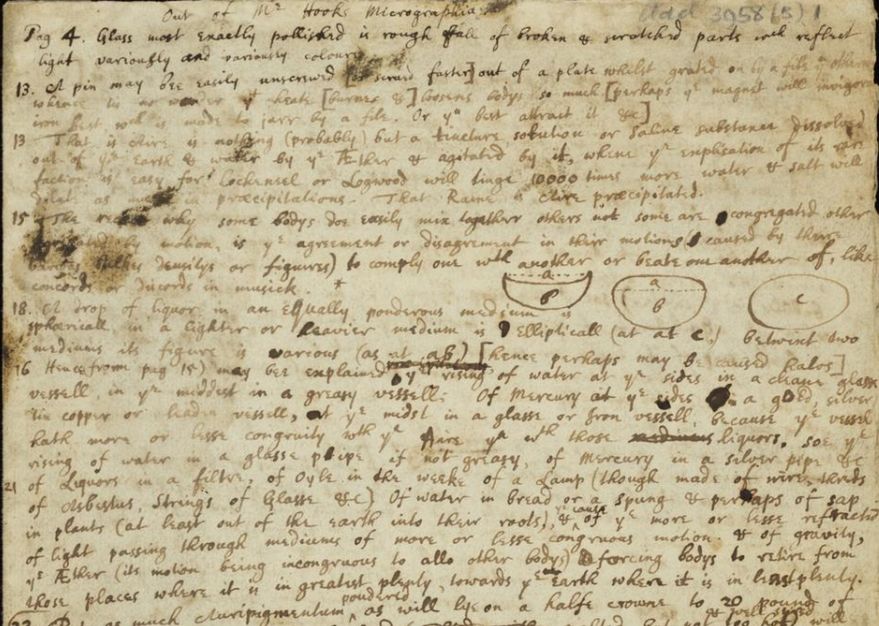 Out of Mr Hooks Micrographia
Add 3958 (5) 1
Pag 4. Glass most exactly pollished is rough full of broken & scratched parts wch reflect
light variously and variously coloured
13. A pin may bee easily unscrewed [& scrued faster] out of a plate whilst grated on by a file
whence tis no wonder yt heate [burnes &] loosens bodys so much [perhaps ye magnet will invigorate
iron best wch is made to jarr by a file. Or yn best attract it &c]
13 That is Aire is nothing (probably) but a tincture, solution or saline substance dissolved
out of ye Earth & water by ye Æther & agitated by it, whence ye explication of its rare
faction is easy for Cochenéel or Logwood will tinge 10000 times more water & salt will
dilate as much in præcipitations. That Raine is Aire præcipitated.
15 The reason why some bodys doe easily mix together others not some are congregated other
by motion, is ye agreement or disagreement in their motions (caused by there
various bulkes densitys or figures) to comply one wth another or beate one another of, like
concords or discords in musick. *
a
b
a
b
c
18. A drop of liquor in an Equally ponderous medium is
sphericall, in a lighter or heavier medium is Ellipticall (at at c.) betwixt two
mediums its figure is various (as at ab) [hence perhaps may be caused halos]
16 Hence (from pag 15) may bee explained ye rising of water at ye sides in a cleane glasse
vessell, in ye middest in a greasy vessell: Of Mercury at ye sides in a gold, silver
Tin copper or leaden vessell, at ye midst in a glasse or Iron vessell, because ye vessel
hath more or lesse congruity wth ye Aire yn wth those mediums liquors, soe ye
rising of water in a glasse pipe if not greasy, of Mercury in a silver pipe &c
21 of Liquors in a filtre, of Oyle in the weeke of a Lamp (though made of wire, threds
of Asbestus, Strings of Glasse &c) Of water in bread or a spung & perhaps of sap
in plants (at least out of the earth into their roots), & of ye cause more or lesse refracted
of light passing through mediums of more or lesse congruous motion. & of gravity,
ye Æther (its motion being incongruous to allo other bodys) forcing bodys to retire from
those places where it is in greatest plenty, towards ye Earth where it is in least plenty.
as much Auripigmentum powdered, as will lye on a halfe crowne to 20 pound of